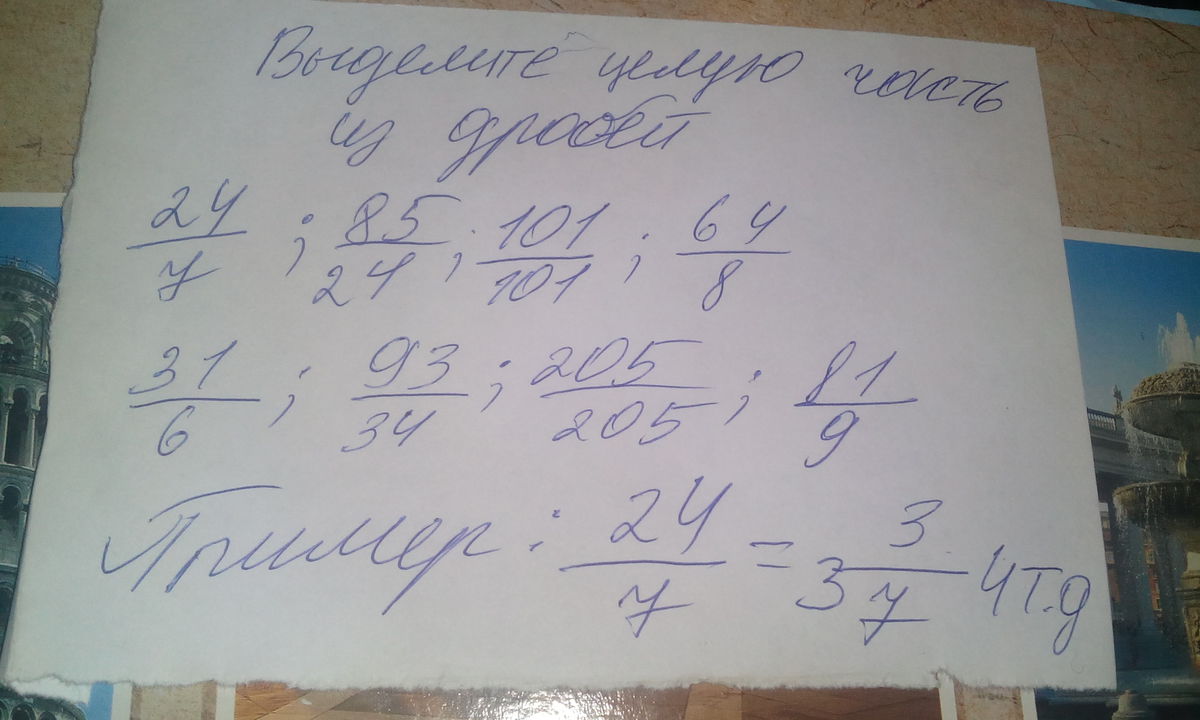 Выделите целую часть
из дробей
24/7 ; 85/24 ; 101/101 ; 64/8
31/6 ; 93/34 ; 205/205 ; 81/9
Пример : 24/7 = 3 3/7 И т.д